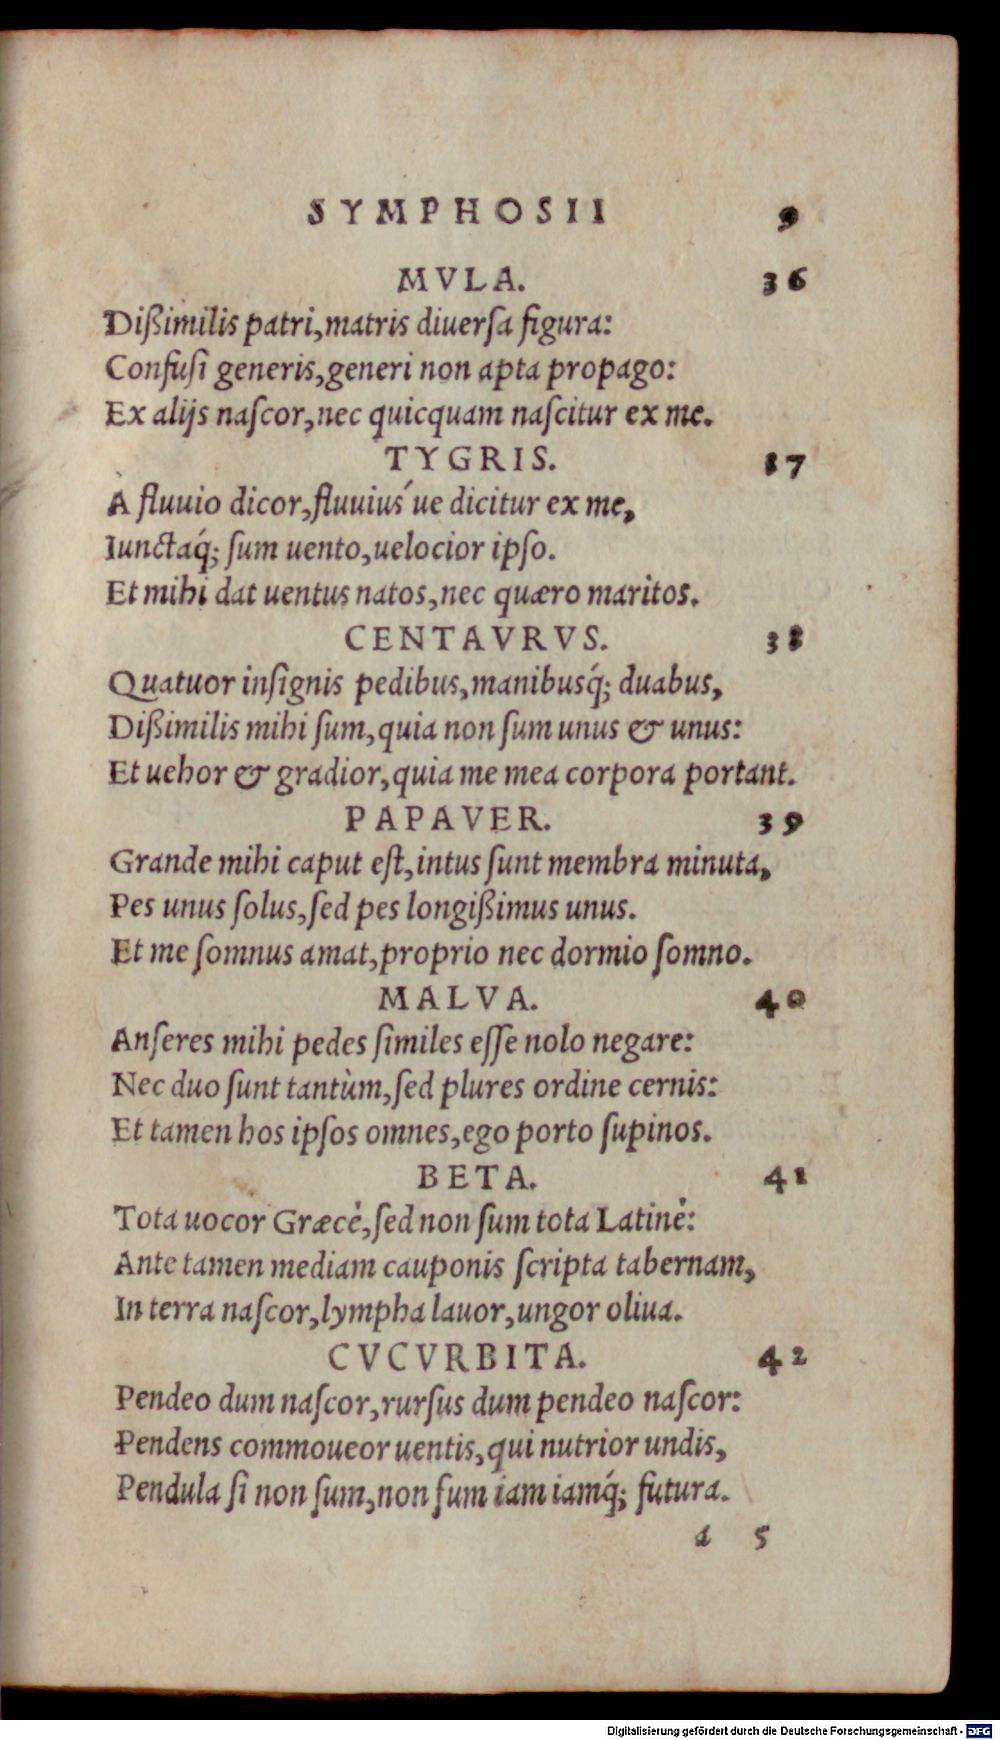 SYMPHOSII 9
MVLA. 36
Dißimilis patri,matris diuerſa figura:
Confuſi generis,generi non apta propago:
Ex alijs naſcor,nec quicquam naſcitur ex me.
TYGRIS. 37
A fluuio dicor,fluuius´ue dicitur ex me,
Iunctaq́; ſum uento,uelocior ipſo.
Et mihi dat uentus natos,nec quæro maritos.
CENTAVRVS. 38
Quatuor inſignis pedibus,manibusq́; duabus,
Dißimilis mihi ſum,quia non ſum unus & unus:
Et uehor & gradior,quia me mea corpora portant.
PAPAVER. 39
Grande mihi caput eſt,intus ſunt membra minuta,
Pes unus ſolus,ſed pes longißimus unus.
Et me ſomnus amat,proprio nec dormio ſomno.
MALVA. 40
Anſeres mihi pedes ſimiles eſſe nolo negare:
Nec duo ſunt tantùm,ſed plures ordine cernis:
Et tamen hos ipſos omnes,ego porto ſupinos.
BETA. 41
Tota uocor Græcè,ſed non ſum tota Latinè:
Ante tamen mediam cauponis ſcripta tabernam,
In terra naſcor,lympha lauor,ungor oliua.
CVCVRBITA. 42
Pendeo dum naſcor,rurſus dum pendeo naſcor:
Pendens commoueor uentis,qui nutrior undis,
Pendula ſi non ſum,non ſum iam iamq́; futura.
a 5
Digitalisierung gefördert durch die Deutsche Forschungsgemeinschaft - DFG